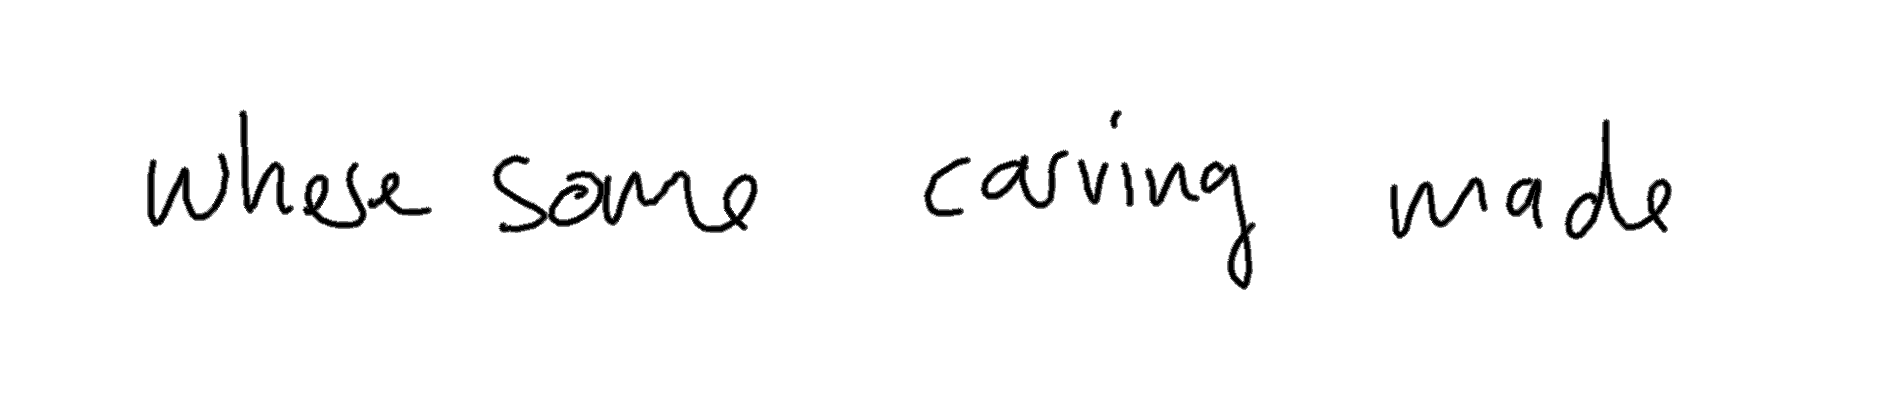 whese some carving made